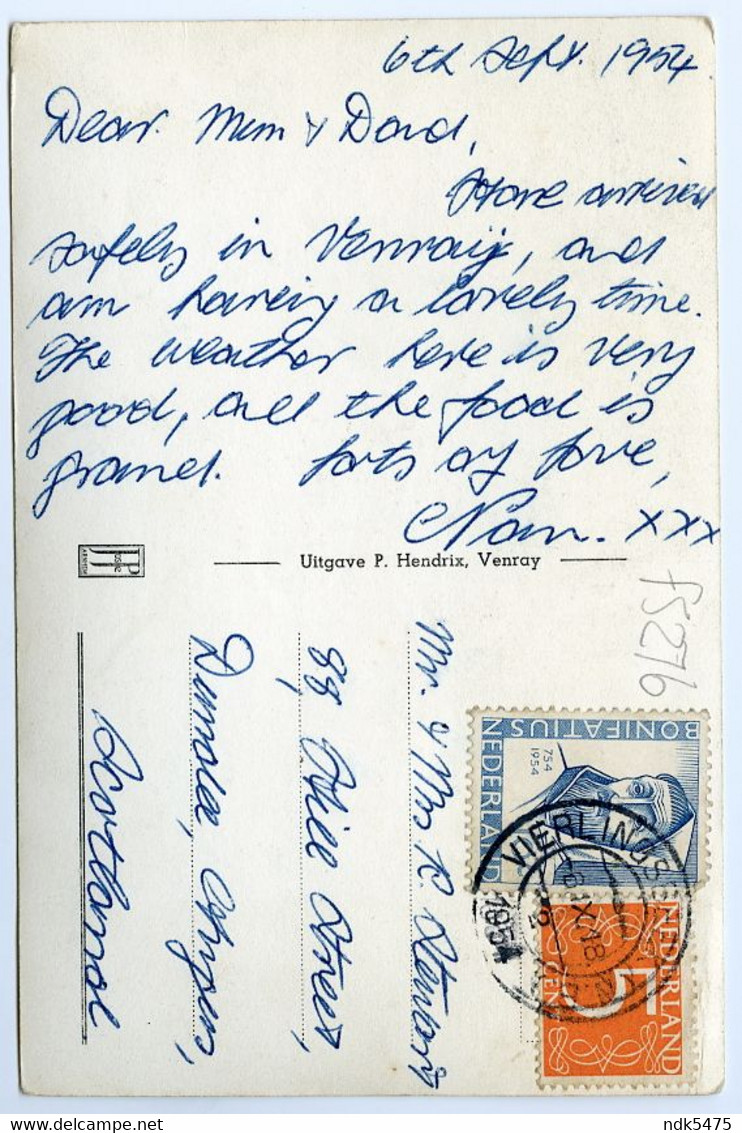 6th Sept. 1954
Dear Mum & Dad,
Have arrived
safely in Venraij, and
am having a lovely time.
The weather here is very
good, and the food is
grand. Lots of love,
Nan. xxx
Uitgave P. Hendrix, Venray
JosPé
ARNHEM
FS276
Mr. & Mrs R.
Hill Street,
Scotland
BONIFATIUS
NEDERLAND
754
1954
VIERLINGSB
1954
NEDERLAND
5
CENT
ndk5475